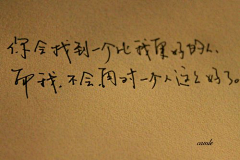 你会找到一个比我更好的人、
而我、不会再对一个人这么好了。
camile